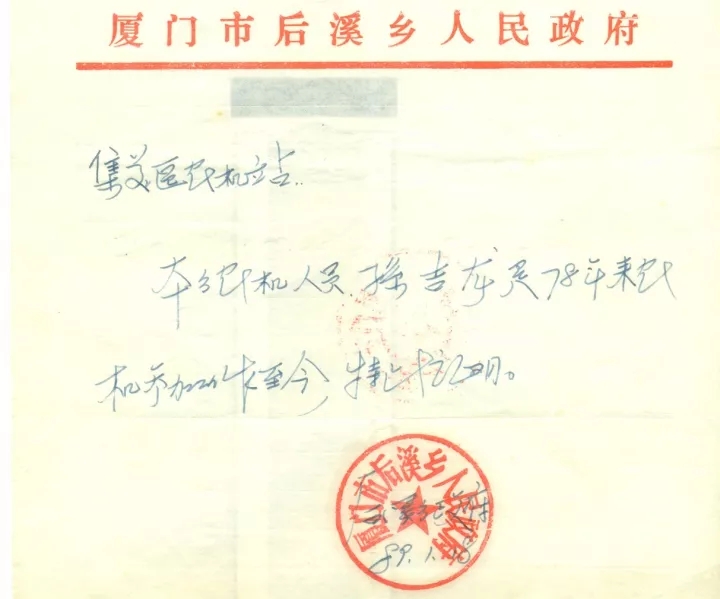 厦门市后溪乡人民政府
集美区农机站:
本乡农机人员 孙吉龙是78年来农
机参加工作至今 特此证明。
厦门市后溪乡人民政府
后溪乡政府
89.1.